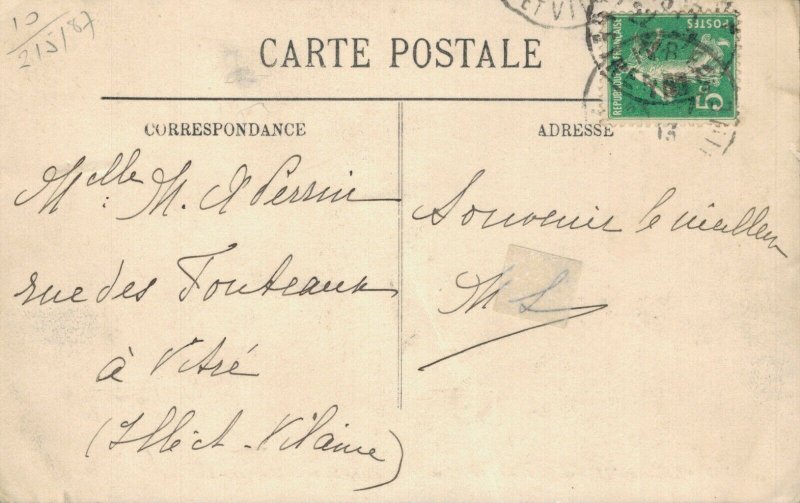 10
215/87
ET VI
CARTE POSTALE
REPUBLIQUE FRANÇAISE
POSTES
5
13
CORRESPONDANCE
ADRESSE
Melle M. Persin
rue des Fouteaux
à Vitré
(Ille-et-Vilaine)
Souvenir le meilleur
M L